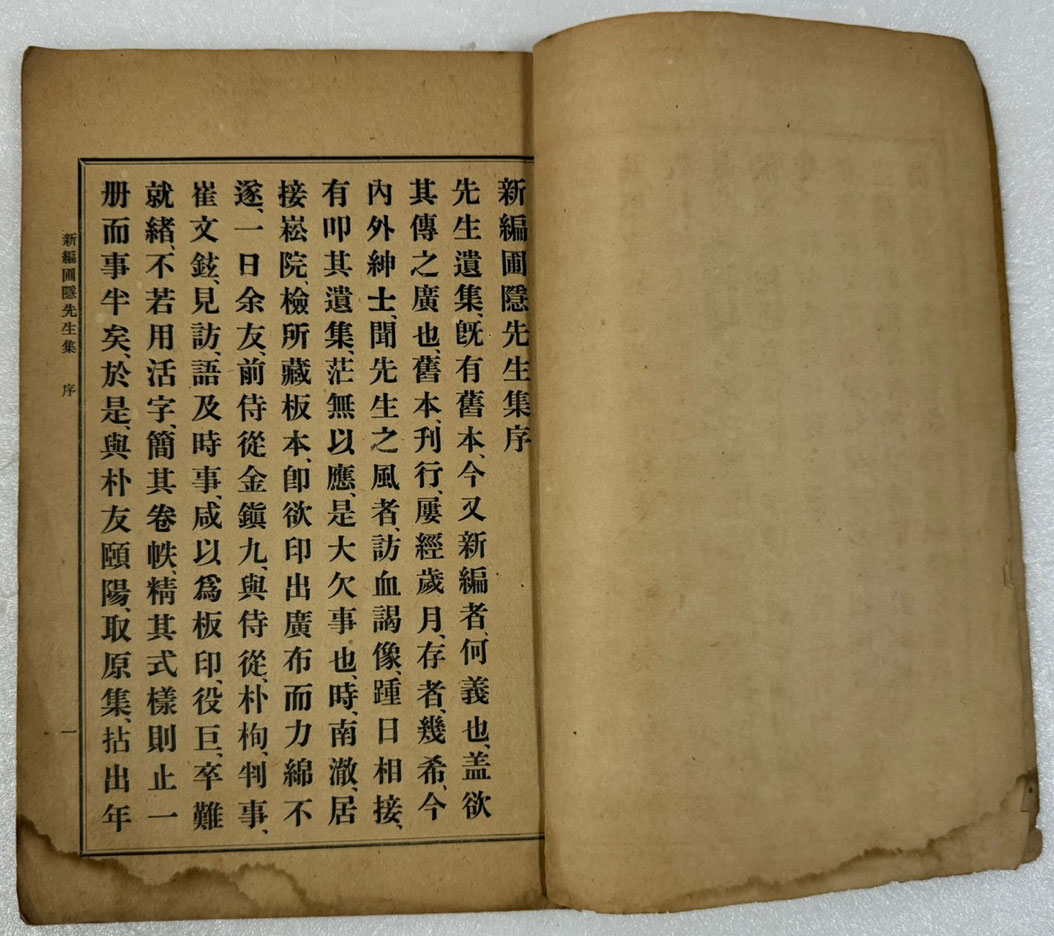 新編圃隱先生集序
先生遺集、旣有舊本、今又新編者、何義也、盖欲
其傳之廣也、舊本、刋行、屢經歲月、存者、幾希、今
內外紳士、聞先生之風者、訪血謁像、踵日相接、
有叩其遺集、茫無以應、是大欠事也、時、南澈、居
接崧院、檢所藏板本、卽欲印出廣布而力綿不
遂、一日余友、前侍從金鎭九、與侍從、朴枸、判事、
崔文鉉、見訪、語及時事、咸以爲板印、役巨、卒難
就緒、不若用活字、簡其卷帙、精其式樣則止一
册而事半矣、於是、與朴友頤陽、取原集、拈出年
新編圃隱先生集 序 一